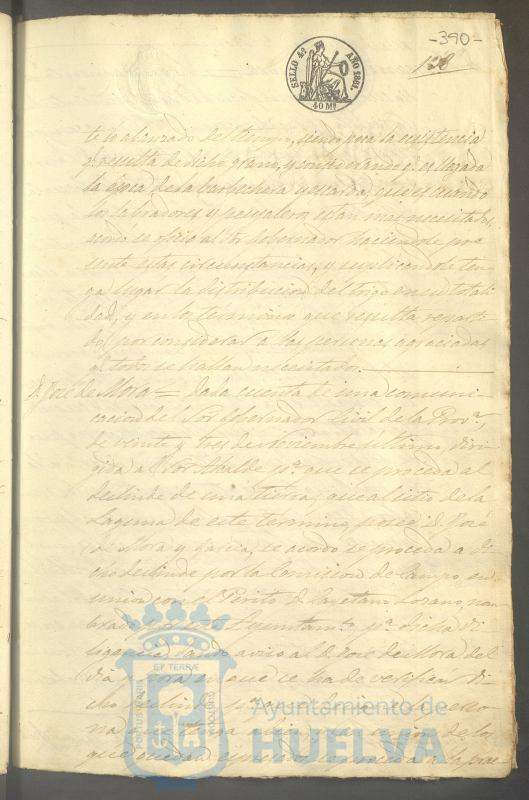 -390-
158
SELLO 4º AÑO 1861.
40 Ms
te lo abanzado del tiempo, siendo poca la existencia
qe resulta de dicho grano, y considerando qe es llegada
la época de la barbechera y escarda, que es cuando
los labradores y pegujaleros están mas necesitados,
acordó se oficie al Sor Gobernador haciendole pre
sente estas circunstancias, y suplicandole ten
ga lugar la distribucion del trigo en su totali
dad, y en los terminos que resulta reparti
do, por considerar a las personas agraciadas
qe todas se hallan necesitadas.
D. José de Mora = Dada cuenta de una comuni-
cacion del Sor Gobernador Civil de la Prova,
de veinte y tres de Noviembre ultimo, diri
gida al Sor Alcalde pa que se proceda al
deslinde de una tierra, que al sitio de la
Laguna de este termino, posee D. José
de Mora y Garcia, se acordó se proceda a di
cho deslinde por la Comision de Campo en
union con el Perito D. Cayetano Lozano, nom
brado por este Ayuntamto pa dicha di
ligencia, dando aviso al D. José de Mora del
dia y hora en que se ha de verificar di
cho deslinde
na que
que puedan
PORTUS MARIS
ET TERRÆ
CUSTODIA
Ayuntamiento de
HUELVA